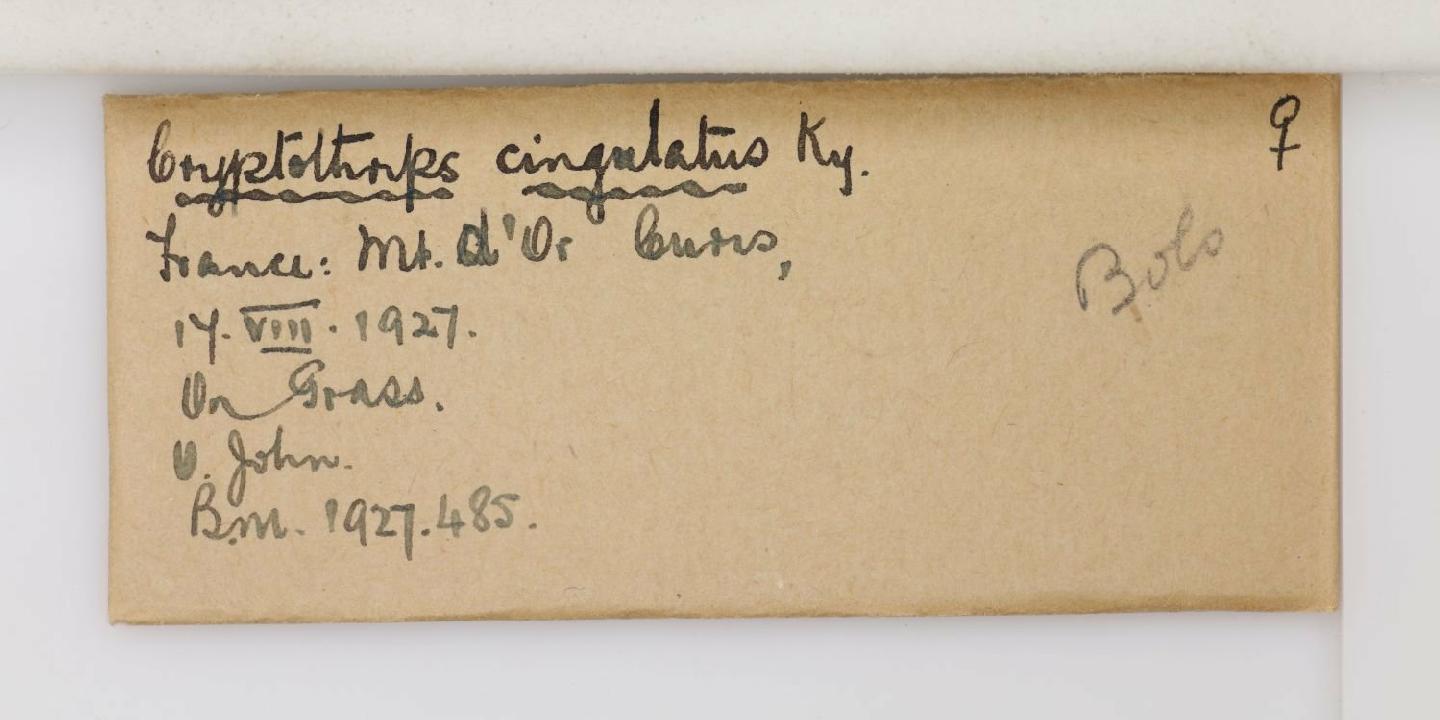 Cryptothrips cingulatus Ky. ♀
France: Mt. d'Or Curis,
17.VIII.1927.
On Grass.
O. John.
B.M. 1927.485.